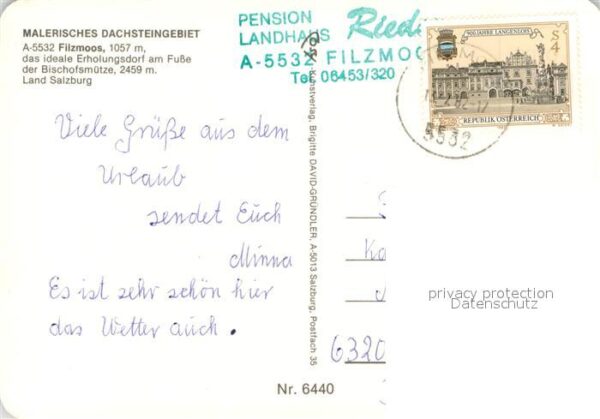 MALERISCHES DACHSTEINGEBIET
A-5532 Filzmoos, 1057 m,
das ideale Erholungsdorf am Fuße
der Bischofsmütze, 2459 m.
Land Salzburg
PENSION
LANDHAUS
A-5532 FILZMOO
Tel. 06453/320
900 JAHRE LANGENLOIS
S 4
REPUBLIK ÖSTERREICH
5532
Viele Grüße aus dem
Urlaub
sendet Euch
Minna
Es ist sehr schön hier
das Wetter auch.
Kunstverlag, Brigitte DAVID-GRÜNDLER, A-5013 Salzburg, Postfach 35
privacy protection
Datenschutz
6320
Nr. 6440